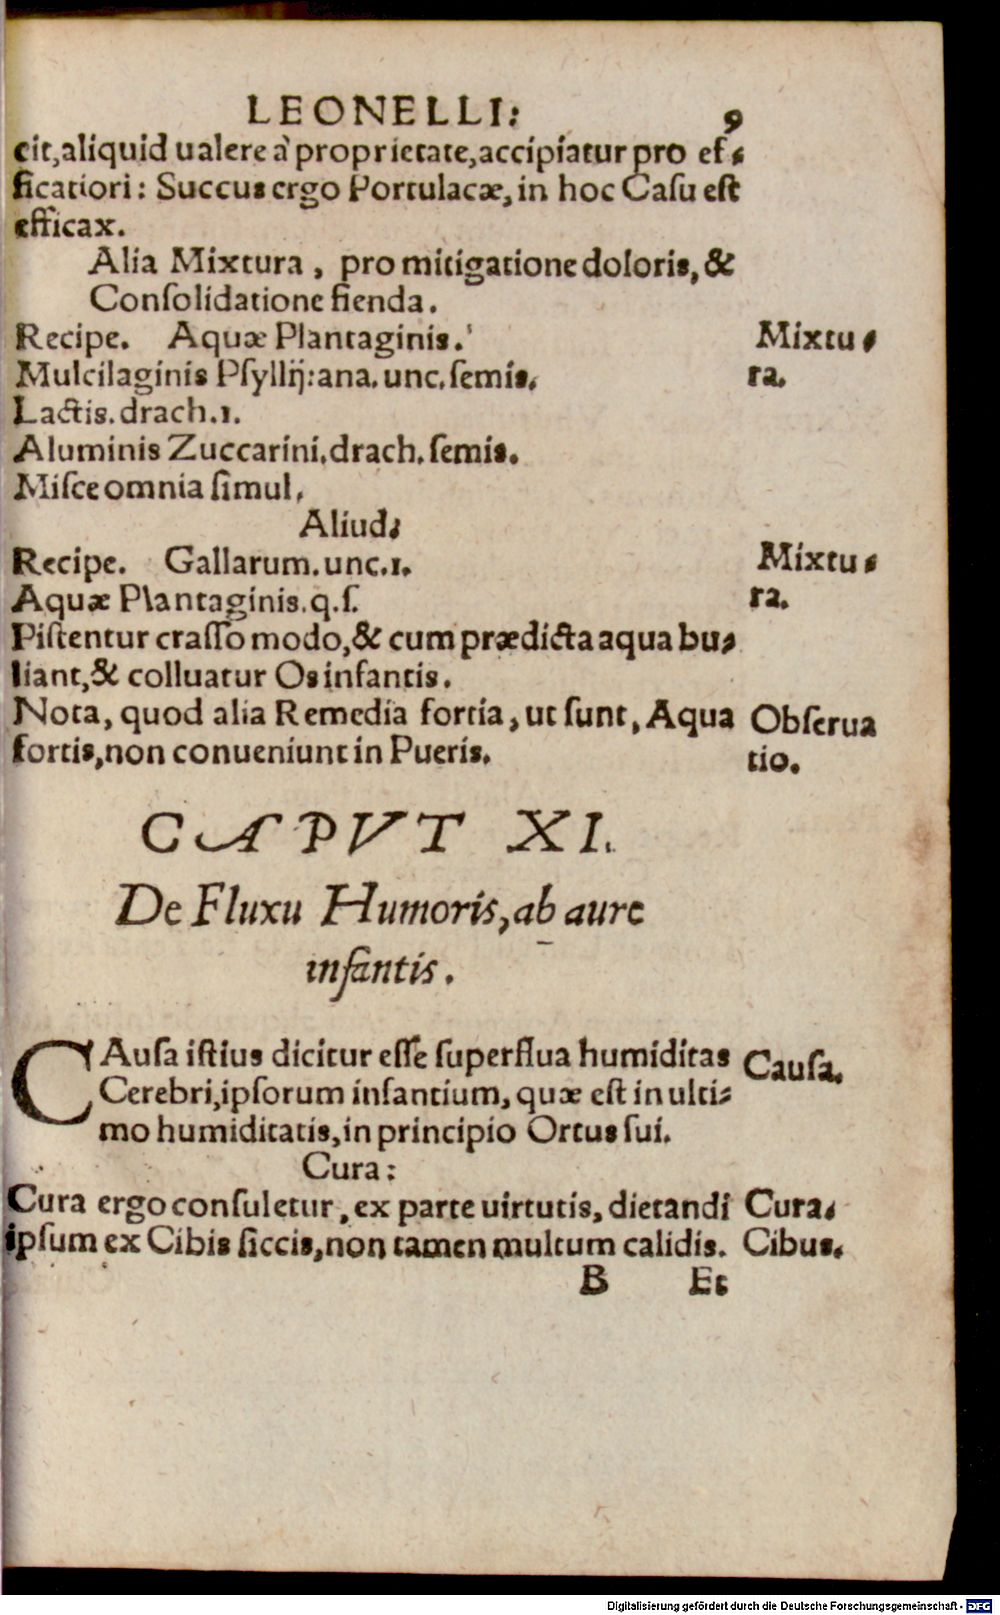 LEONELLI: 9
cit, aliquid ualere à proprietate, accipiatur pro ef-
ficatiori: Succus ergo Portulacæ, in hoc Casu est
efficax.
Alia Mixtura, pro mitigatione doloris, &
Consolidatione fienda.
Recipe. Aquæ Plantaginis.
Mixtu-
Mulcilaginis Psyllij: ana. unc. semis.
ra.
Lactis. drach. 1.
Aluminis Zuccarini. drach. semis.
Misce omnia simul.
Aliud.
Recipe. Gallarum. unc. 1.
Mixtu-
Aquæ Plantaginis. q. s.
ra.
Pistentur crasso modo, & cum prædicta aqua bu-
liant, & colluatur Os infantis.
Nota, quod alia Remedia fortia, ut sunt, Aqua
Obserua
fortis, non conueniunt in Pueris.
tio.
CAPVT XI.
De Fluxu Humoris, ab aure
infantis.
CAusa istius dicitur esse superflua humiditas
Causa.
Cerebri, ipsorum infantium, quæ est in ulti-
mo humiditatis, in principio Ortus sui.
Cura:
Cura ergo consuletur, ex parte uirtutis, dietandi
Cura.
ipsum ex Cibis siccis, non tamen multum calidis.
Cibus.
B Et
Digitalisierung gefördert durch die Deutsche Forschungsgemeinschaft - DFG